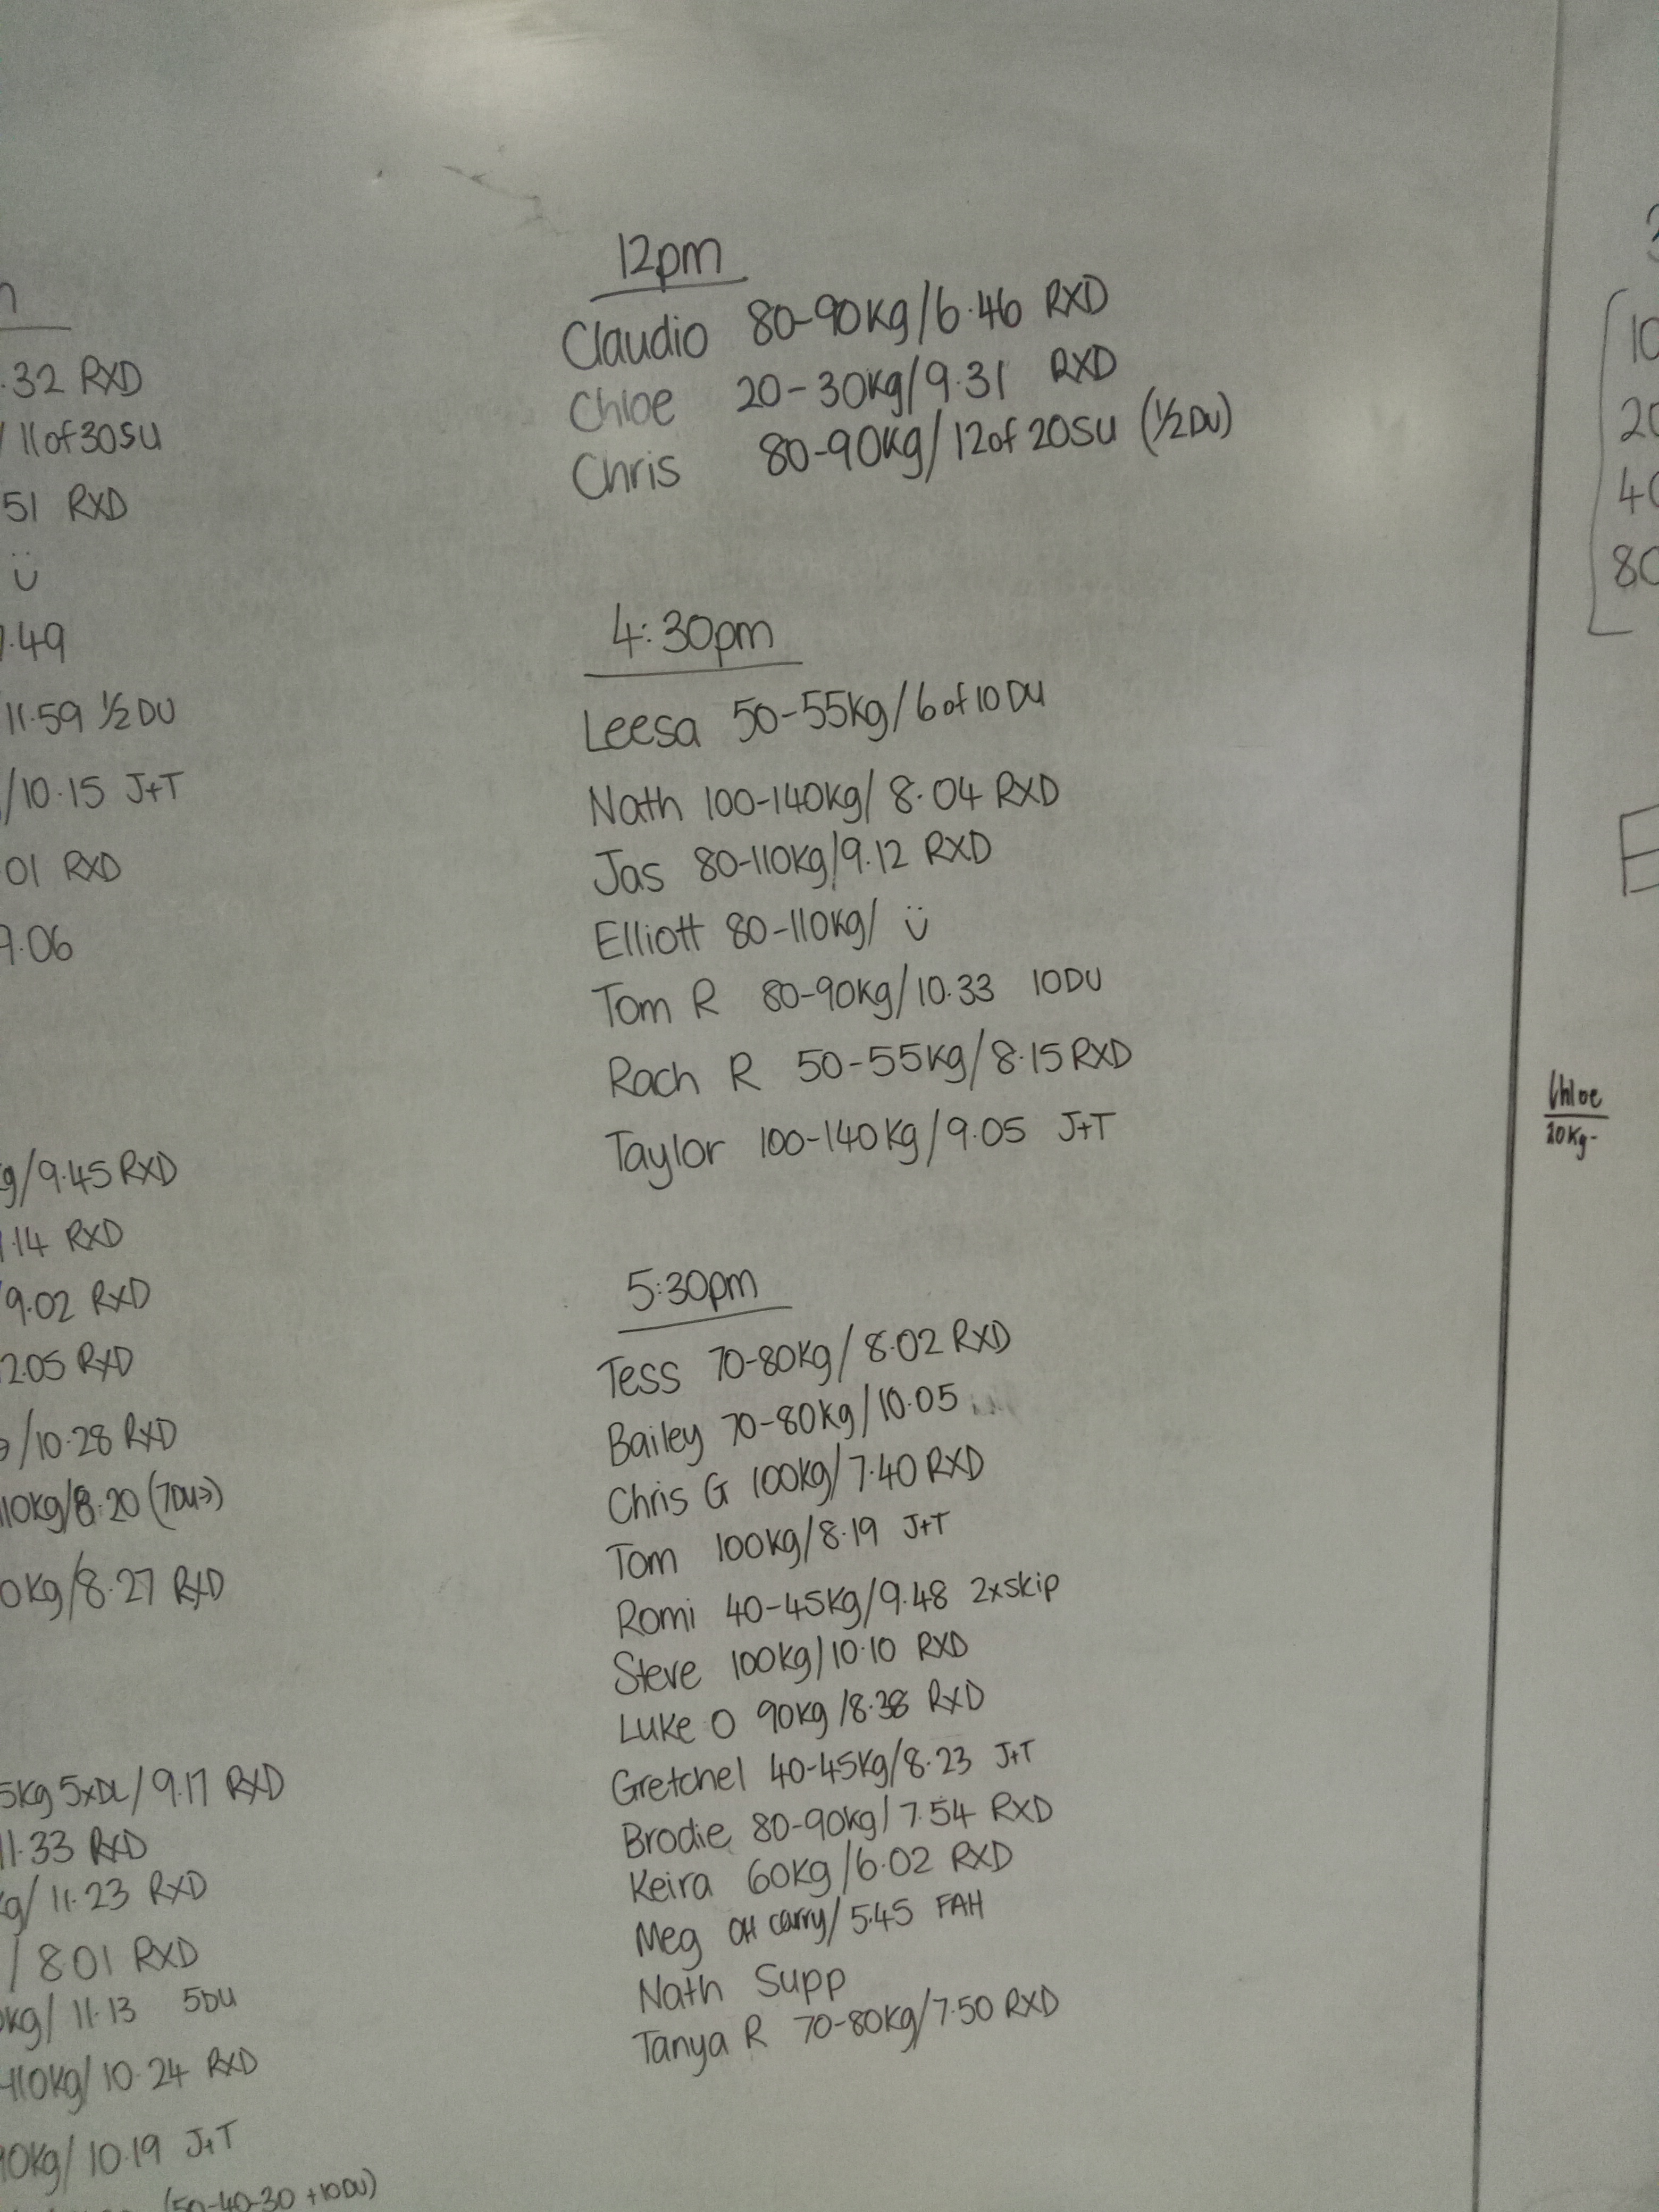 .32 RXD
11of30SU
51 RXD
.49
11.59 ½DU
/10.15 J+T
01 RXD
9.06
g/9.45 RXD
.14 RXD
9.02 RXD
2.05 RXD
/10.28 RXD
10kg/8.20 (7DU→)
0kg/8.27 RXD
5kg 5xDL/9.17 RXD
11.33 RXD
kg/11.23 RXD
/8.01 RXD
kg/11.13 5DU
110kg/10.24 RXD
0kg/10.19 J+T
(50-40-30 +10DU)
12pm
Claudio 80-90kg/6.46 RXD
Chloe 20-30kg/9.31 RXD
Chris 80-90kg/12of20SU (½DU)
4:30pm
Leesa 50-55kg/6of10DU
Nath 100-140kg/8.04 RXD
Jas 80-110kg/9.12 RXD
Elliott 80-110kg/ Ü
Tom R 80-90kg/10.33 10DU
Rach R 50-55kg/8.15 RXD
Taylor 100-140kg/9.05 J+T
5:30pm
Tess 70-80kg/8.02 RXD
Bailey 70-80kg/10.05
Chris G 100kg/7.40 RXD
Tom 100kg/8.19 J+T
Romi 40-45kg/9.48 2xskip
Steve 100kg/10.10 RXD
Luke O 90kg/8.38 RXD
Gretchel 40-45kg/8.23 J+T
Brodie 80-90kg/7.54 RXD
Keira 60kg/6.02 RXD
Meg OH carry/5.45 FAH
Nath Supp
Tanya R 70-80kg/7.50 RXD
10
20
40
80
Chloe
20kg-